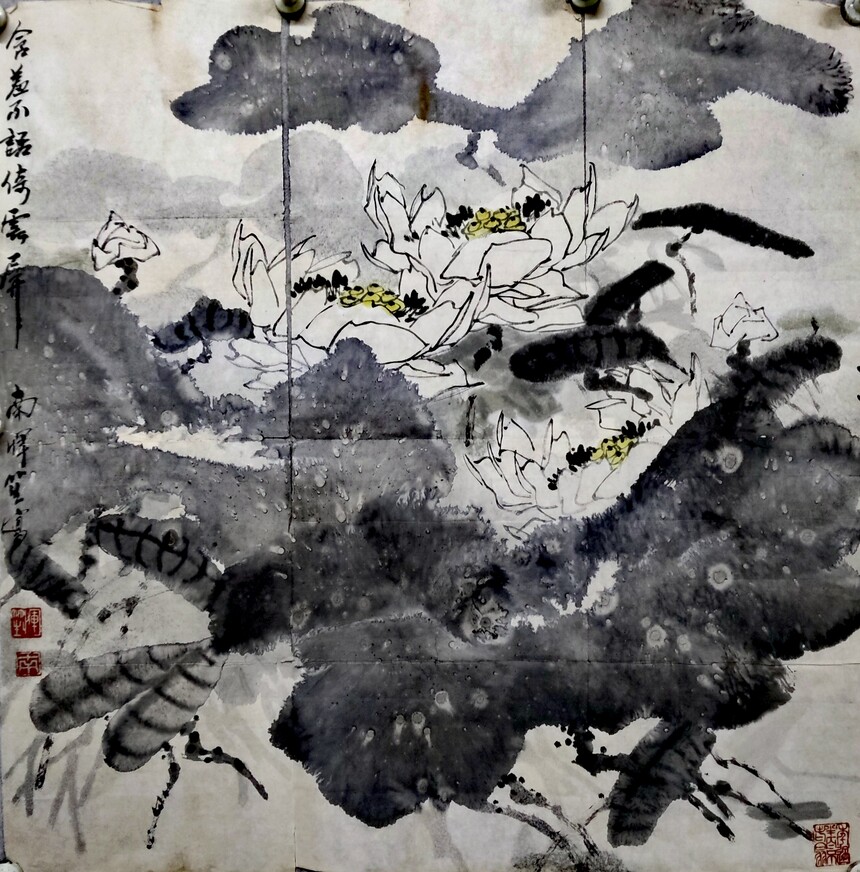 含羞不語倚雲屏
南暉笙寫